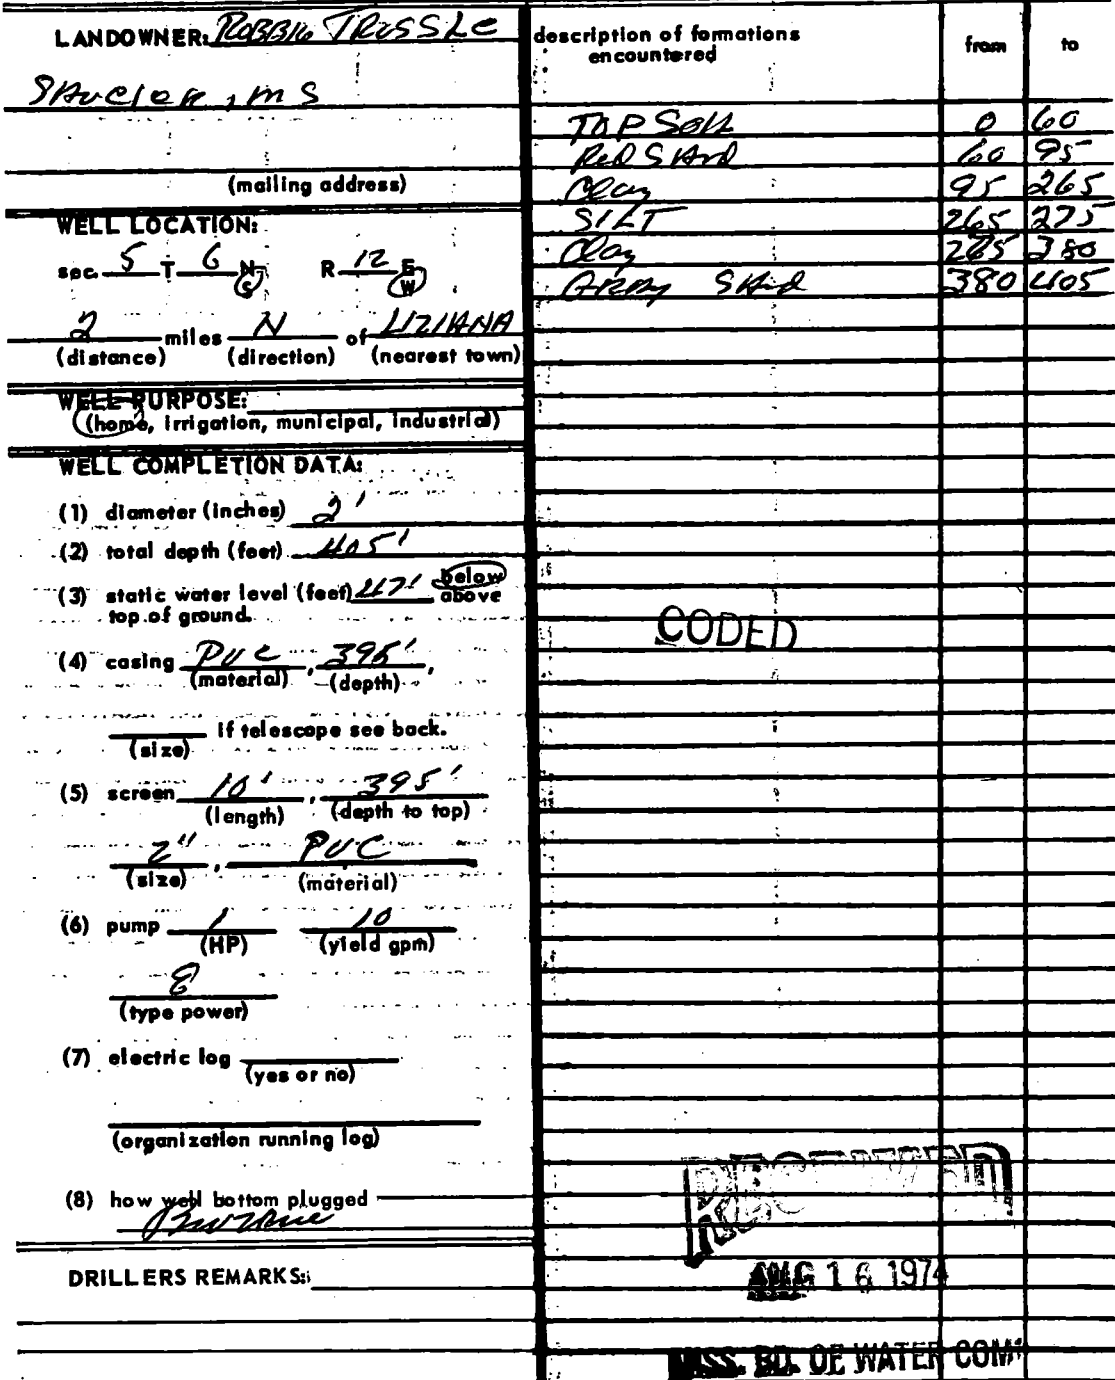 LANDOWNER: ROBBIE TRUSSLE
SAUCIER, MS
(mailing address)
WELL LOCATION:
sec. 5 T 6 N S R 12 E W
2 miles N of LIZIANA
(distance) (direction) (nearest town)
WELL PURPOSE:
(home, irrigation, municipal, industrial)
WELL COMPLETION DATA:
(1) diameter (inches) 2'
(2) total depth (feet) 405'
(3) static water level (feet) 47' below
above
top of ground.
(4) casing PVC, 395',
(material) (depth)
if telescope see back.
(size)
(5) screen 10', 395'
(length) (depth to top)
2", PVC
(size) (material)
(6) pump 1 10
(HP) (yield gpm)
E
(type power)
(7) electric log
(yes or no)
(organization running log)
(8) how well bottom plugged
DRILLERS REMARKS:
description of formations from to
encountered
TOP SOIL 0 60
Red SAnd 60 95
Clay 95 265
SILT 265 275
Clay 265 380
GRAY SAnd 380 405
CODED
RECEIVED
AUG 16 1974
MISS. BD. OF WATER COM